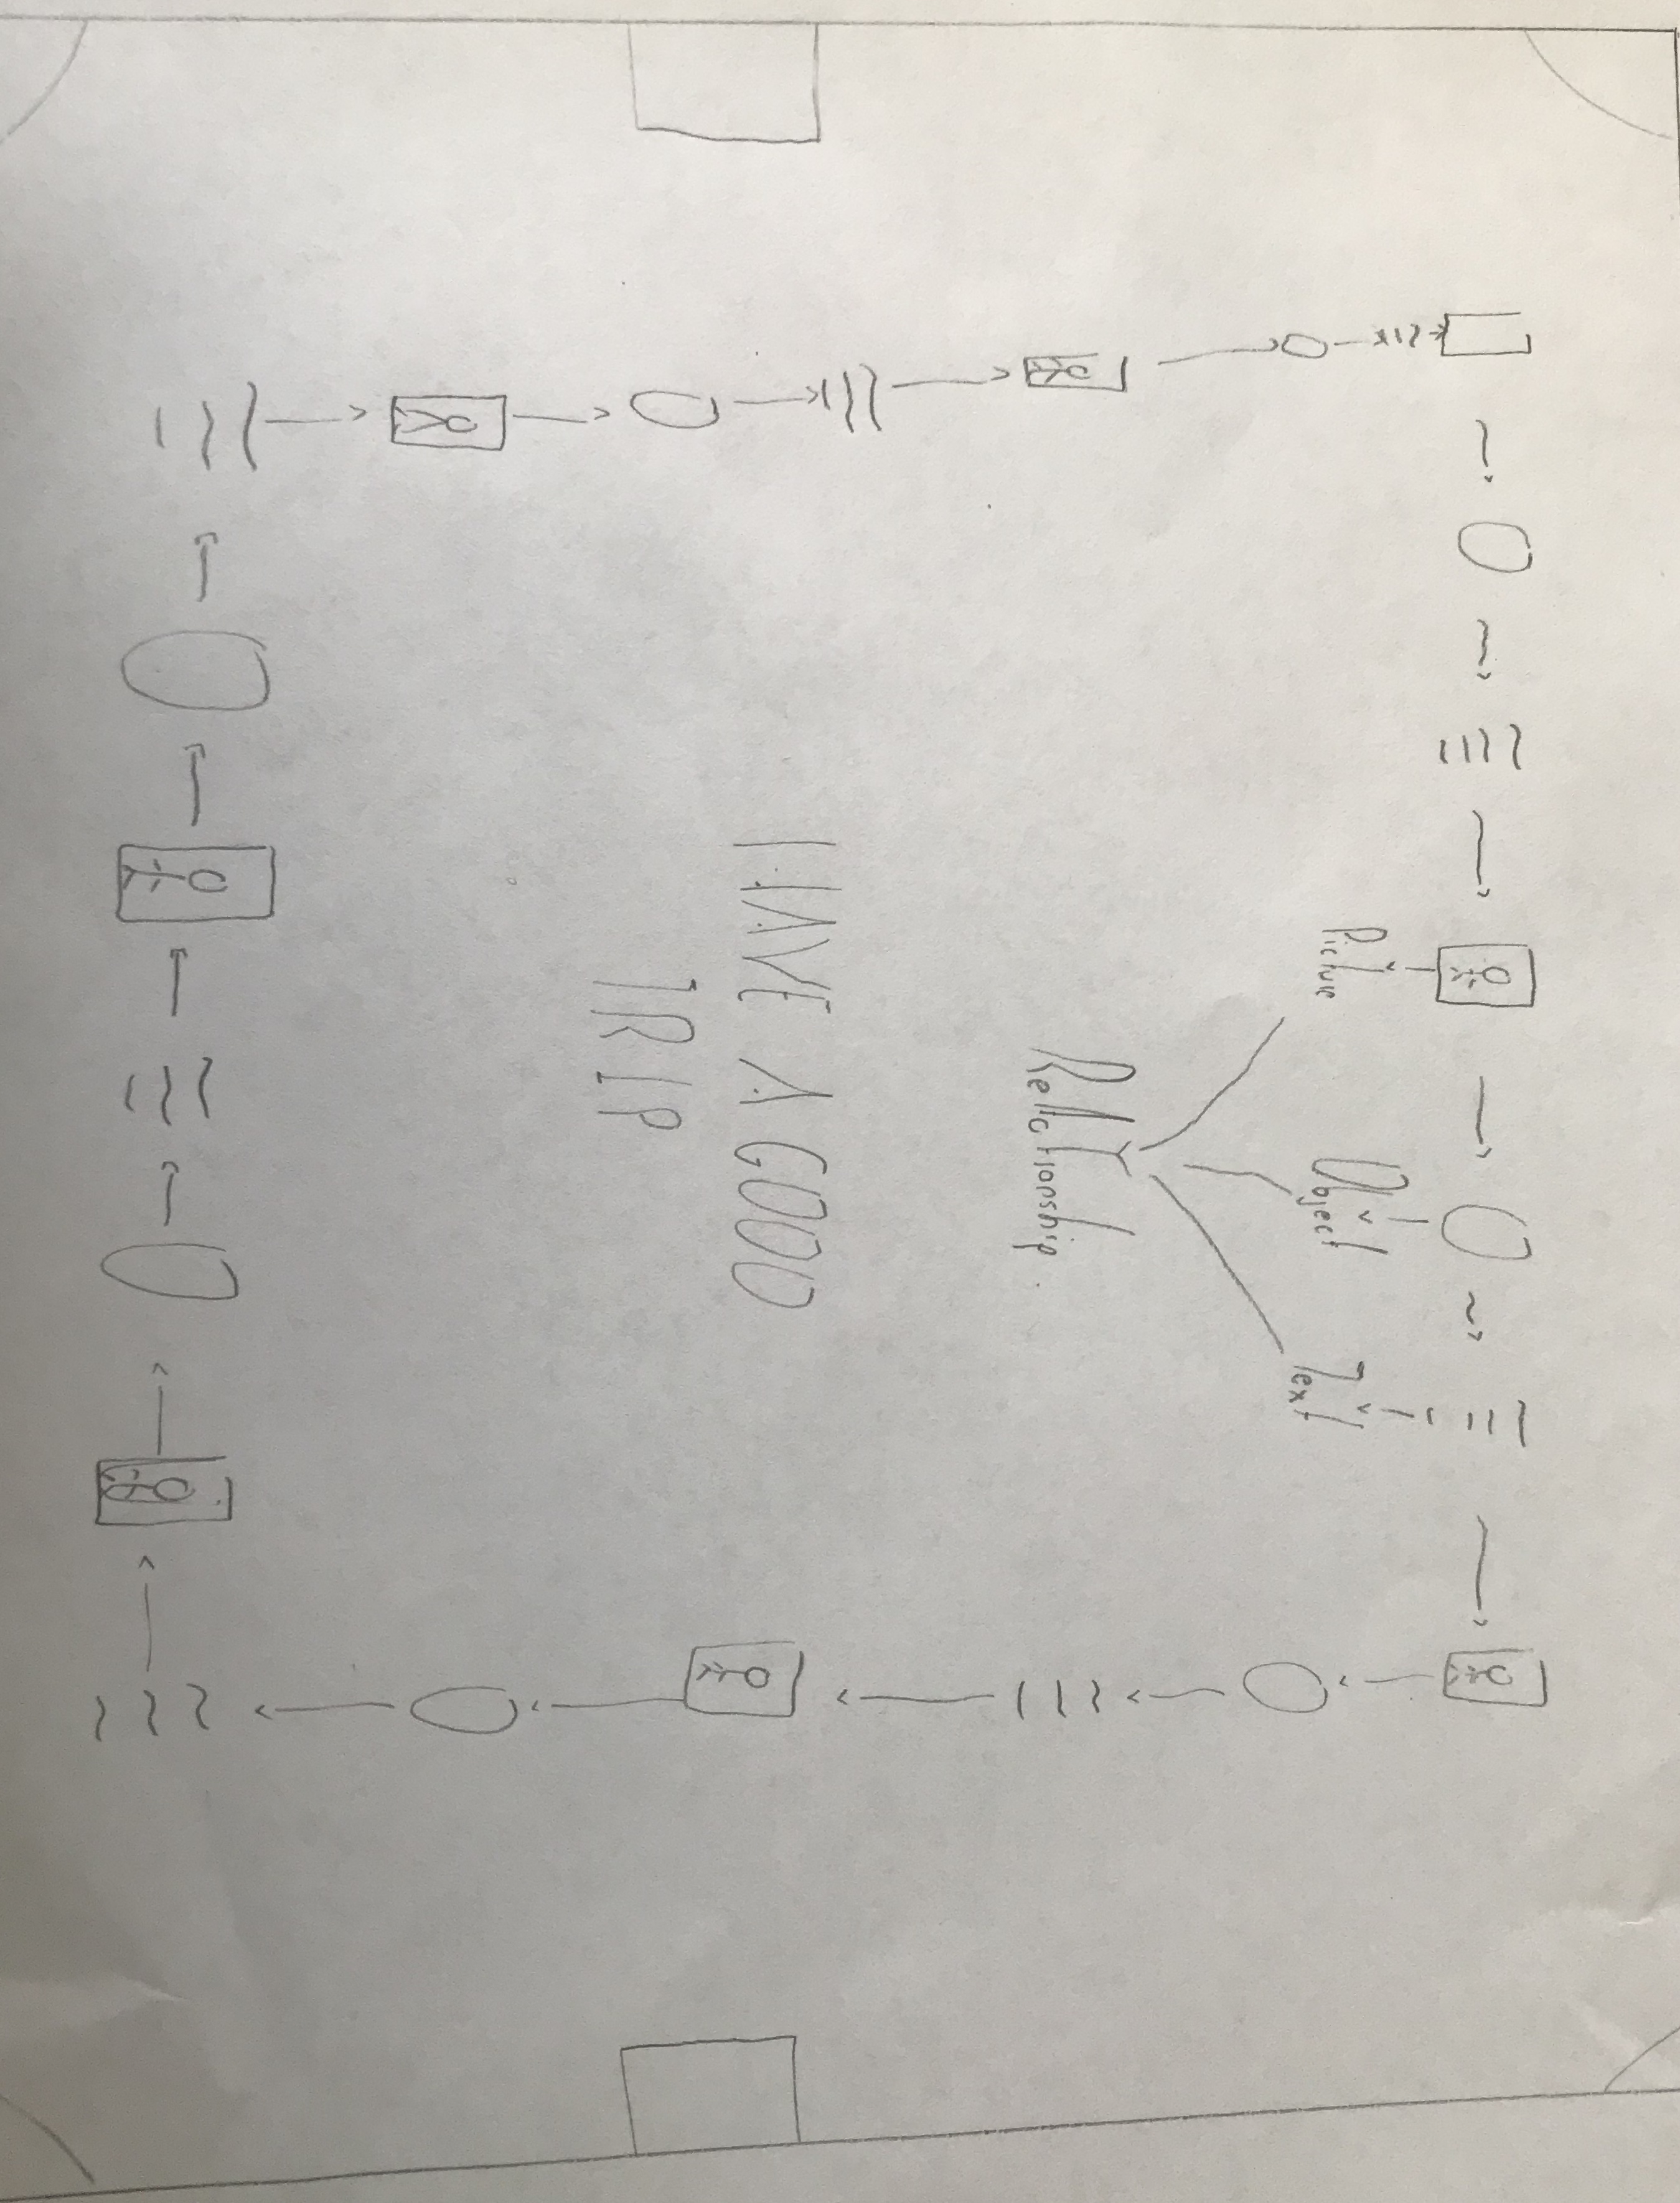 Picture
Object
Text
Relationship.
HAVE A GOOD
TRIP